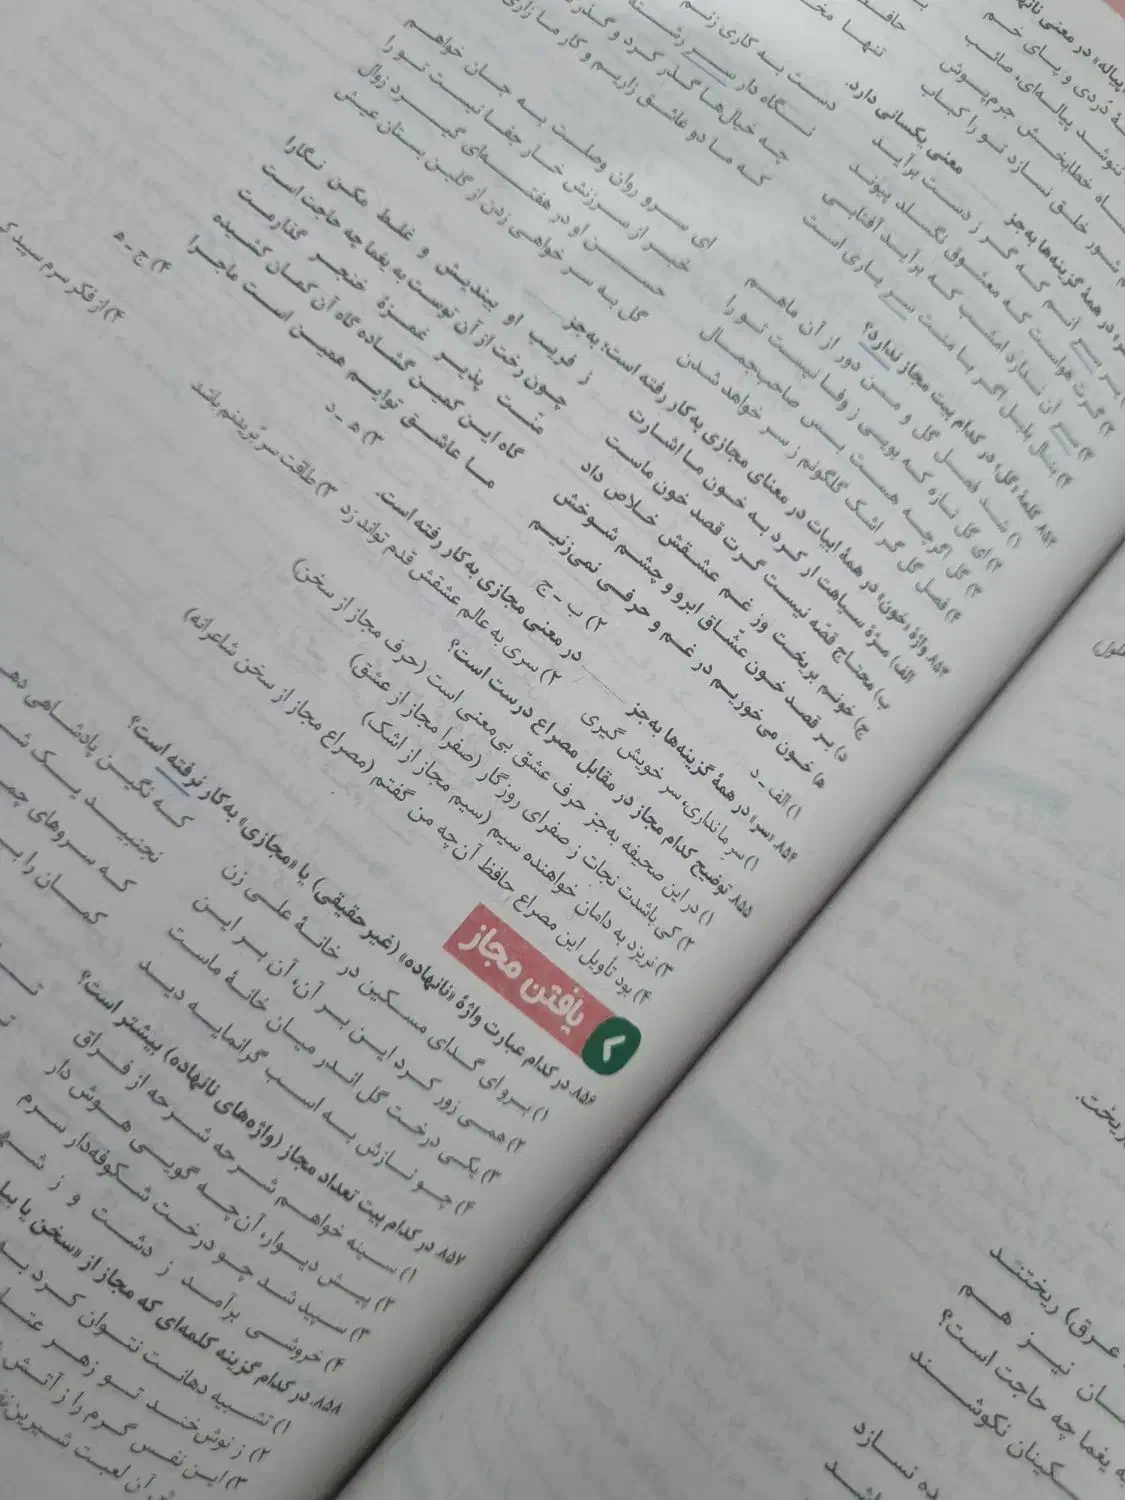 پیاله» در معنی
دُردی و پای خم
ننوشد پیاله‌ای، صائب
خطابخش جرم‌پوش
شور خلق نسازد تو را کباب
حافظ
تنها
در همهٔ گزینه‌ها به‌جز معنی یکسانی دارد.
سر آنم که گر ز دست برآید دست به کاری زنم
گرت هواست که معشوق نگسلد پیوند نگاه دار سر رشته
۳) سر آن ندارد امشب که برآید آفتابی چه خیال‌ها گذر کرد و گذر
۴) بنال بلبل اگر با منت سر یاری است که ما دو عاشق زاریم و کار ما زاری
۸۵۲. کلمهٔ «گل» در کدام بیت مجاز ندارد؟
۱) شد فصل گل و من دور از آن ماهم ای سرو روان وصلت به جان خواهم
۲) ای گل تازه که بویی ز وفا نیست تو را خبر از سرزنش خار جفا نیست تو را
۳) گل اگرچه هست بس صاحب‌جمال حسن او در هفته‌ای گیرد زوال
۴) فصل گل گر اشک گلگونم ز سر خواهد شدن گل به سر خواهی زدن از گلبن بستان عیش
۸۵۳. واژهٔ «خون» در همهٔ ابیات در معنای مجازی به‌کار رفته است؛ به‌جز
الف) مژهٔ سیاهت ار کرد به خون ما اشارت ز فریب او بیندیش و غلط مکن نگارا
ب) محتاج قصّه نیست گرت قصد خون ماست چون رخت از آن توست به یغما چه حاجت است
ج) خونم بریخت وز غم عشقش خلاص داد منّت پذیر غمزهٔ خنجر گذارمت
د) بر قصد خون عشّاق ابرو و چشم شوخش گاه این کمین گشاده گاه آن کمان کشیده
ه) خون می‌خوریم در غم و حرفی نمی‌زنیم ما عاشق توایم همین است ماجرا
۱) الف ـ د ۲) ب ـ ج ۳) ه ـ د ۴) ج ـ ه
۸۵۴. «سر» در همهٔ گزینه‌ها به‌جز .............. در معنی مجازی به‌کار رفته است.
۱) سرِ ما نداری، سر خویش گیری ۲) سری به عالم عشقش قدم تواند زد ۳) طاقت سر بُریدنم باشد ۴) از فکر سرم سپید
۸۵۵. توضیح کدام مجاز در مقابل مصراع درست است؟
۱) در این صحیفه به‌جز حرف عشق بی‌معنی است (حرف مجاز از سخن)
۲) کی باشدت نجات ز صفرای روزگار (صفرا مجاز از عشق)
۳) نریزد به دامان خواهنده سیم (سیم مجاز از اشک)
۴) بود تأویل این مصراع حافظ آن‌چه من گفتم (مصراع مجاز از سخن شاعرانه)
۲ یافتن مجاز
۸۵۶. در کدام عبارت واژهٔ «نانهاده» (غیرحقیقی) یا «مجازی» به‌کار نرفته است؟
۱) برو ای گدای مسکین در خانهٔ علی زن که نگین پادشاهی
۲) همی زور کرد این بر آن، آن بر این نجنبید یک
۳) یکی درخت گل اندر میان خانهٔ ماست که سروهای
۴) چو نازش به اسب گرانمایه دید کمان را
۸۵۷. در کدام بیت تعداد مجاز (واژه‌های نانهاده) بیشتر است؟
۱) سینه خواهم شرحه شرحه از فراق
۲) پیش دیوار، آن‌چه گویی هوش دار
۳) سپید شد چو درخت شکوفه‌دار سرم
۴) خروشی برآمد ز دشت و ز
۸۵۸. در کدام گزینه کلمه‌ای که مجاز از «سخن یا
۱) تشبیه دهانت نتوان کرد
۲) ز نوش‌خند تو زهر
۳) این نفس گرم را ز آتش
آن لعبت
طول
ریخت.
عرق) ریختند
نیز هم
به یغما چه حاجت است؟
نکوشند
سازد